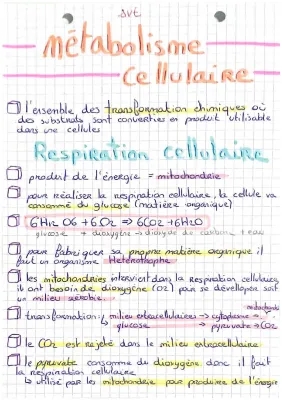 SVT
métabolisme
cellulaire
l'ensemble des transformation chimiques où
des substrats sont converties en produit utilisable
dans une cellules
Respiration cellulaire
produit de l'énergie = mitochondrie
pour réaliser la respiration cellulaire, la cellule va
consommé du glucose (matière organique)
6H12O6 + 6O2 ⇒ 6CO2 + 6H2O
glucose + dioxygène → dioxyde de carbone + eau
pour fabriquer sa propre matière organique il
faut un organisme Hétérotrophe
les mitochondries intervient dans la Respiration cellulaire,
ils ont besoin de dioxygène (O2) pour se développer soit
un milieu aérobie.
mitochondrie
transformation: milieu extracellulaires → cytoplasme →
glucose → pyruvate → CO2
le CO2 est rejeté dans le milieu extracellulaire
le pyruvate consomme du dioxygène donc il fait
la respiration cellulaire
↳ utilisé par les mitochondrie pour produire de l'énergie